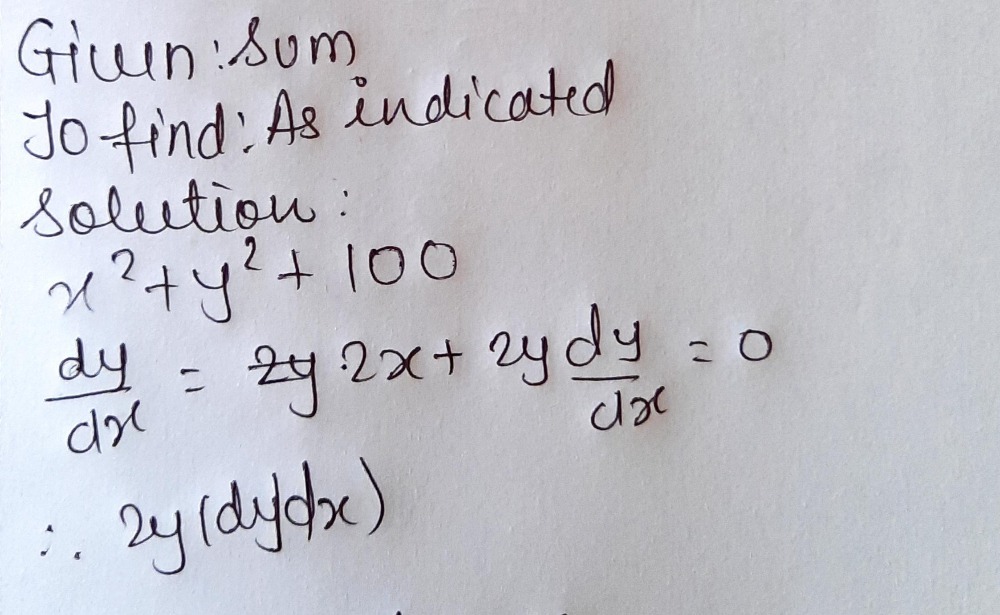 Given: Sum
To find: As indicated
Solution:
x² + y² + 100
dy/dx = 2y 2x + 2y dy/dx = 0
∴ 2y (dydx)